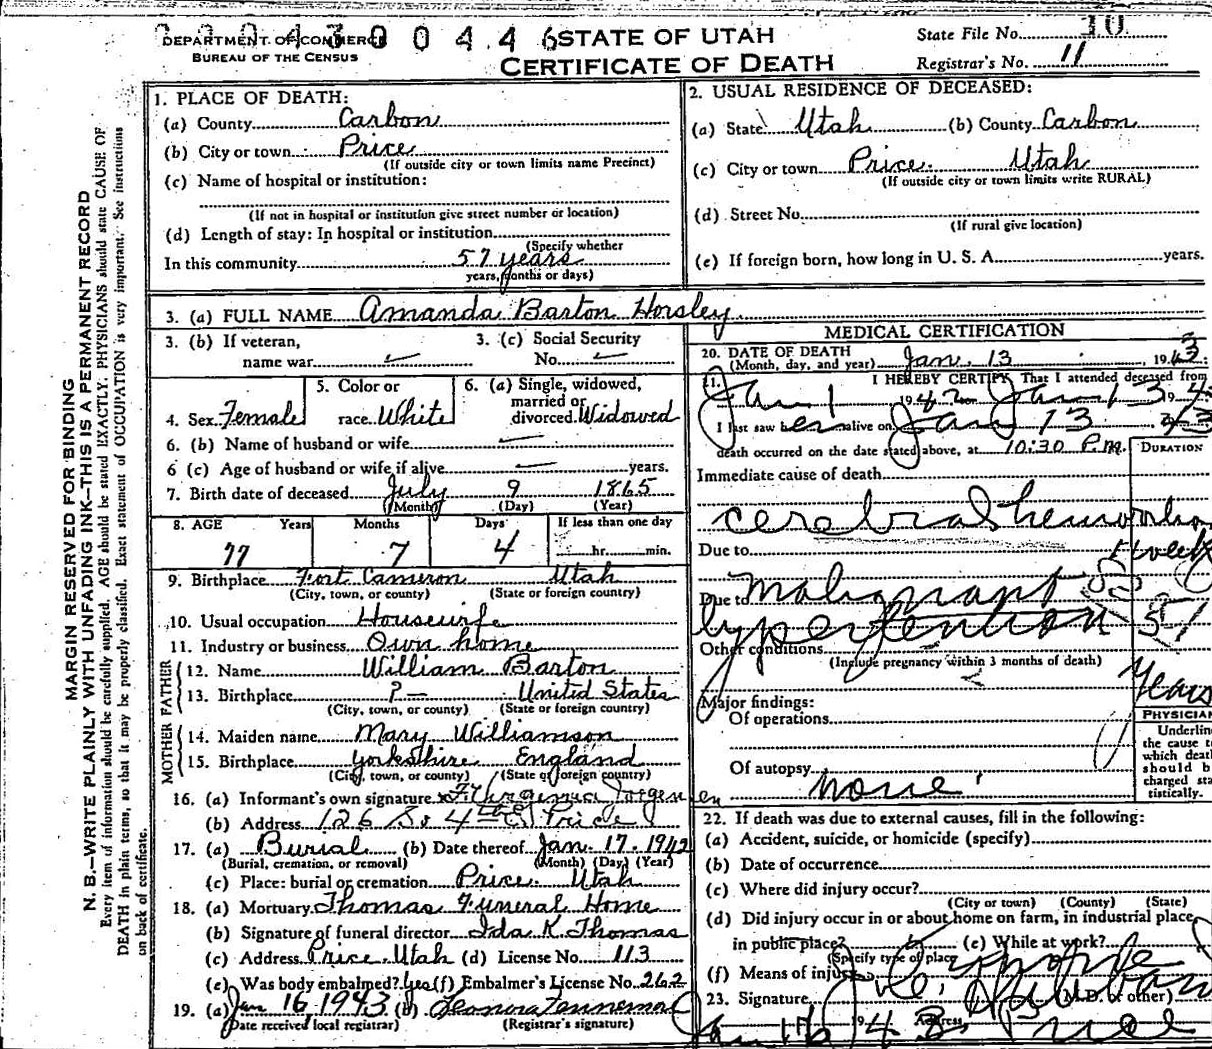 DEPARTMENT OF COMMERCE
BUREAU OF THE CENSUS
STATE OF UTAH
CERTIFICATE OF DEATH
State File No. 10
Registrar's No. 11
MARGIN RESERVED FOR BINDING
N. B.—WRITE PLAINLY WITH UNFADING INK—THIS IS A PERMANENT RECORD
Every item of information should be carefully supplied. AGE should be stated EXACTLY. PHYSICIANS should state CAUSE OF
DEATH in plain terms, so that it may be properly classified. Exact statement of OCCUPATION is very important. See instructions
on back of certificate.
1. PLACE OF DEATH:
(a) County Carbon
(b) City or town Price
(If outside city or town limits name Precinct)
(c) Name of hospital or institution:
(If not in hospital or institution give street number or location)
(d) Length of stay: In hospital or institution
(Specify whether
In this community 57 years
years, months or days)
2. USUAL RESIDENCE OF DECEASED:
(a) State Utah (b) County Carbon
(c) City or town Price. Utah
(If outside city or town limits write RURAL)
(d) Street No.
(If rural give location)
(e) If foreign born, how long in U. S. A. years.
3. (a) FULL NAME Amanda Barton Horsley
3. (b) If veteran, name war
3. (c) Social Security No.
4. Sex Female
5. Color or race White
6. (a) Single, widowed, married or divorced Widowed
6. (b) Name of husband or wife
6 (c) Age of husband or wife if alive years.
7. Birth date of deceased July 9 1865
(Month) (Day) (Year)
8. AGE Years Months Days If less than one day
77 7 4 hr. min.
9. Birthplace Fort Cameron Utah
(City, town, or county) (State or foreign country)
10. Usual occupation Housewife
11. Industry or business Own home
FATHER
12. Name William Barton
13. Birthplace ?— United States
(City, town, or county) (State or foreign country)
MOTHER
14. Maiden name Mary Williamson
15. Birthplace Yorkshire England
(City, town, or county) (State or foreign country)
16. (a) Informant's own signature
(b) Address 126 So 4th E Price
17. (a) Burial (b) Date thereof Jan. 17. 1942
(Burial, cremation, or removal) (Month) (Day) (Year)
(c) Place: burial or cremation Price. Utah
18. (a) Mortuary Thomas Funeral Home
(b) Signature of funeral director Ida K. Thomas
(c) Address Price. Utah (d) License No. 113
(e) Was body embalmed? Yes (f) Embalmer's License No. 262
19. (a) Jan 16, 1943 (b)
(Date received local registrar) (Registrar's signature)
MEDICAL CERTIFICATION
20. DATE OF DEATH Jan. 13, 1943
(Month, day, and year)
21. I HEREBY CERTIFY That I attended deceased from
Jan 1 1942 Jan 13 194
I last saw her alive on Jan 13 43
death occurred on the date stated above, at 10:30 P.m.
DURATION
Immediate cause of death
cerebral hemorrha
Due to
1 week
Due to malignant
hypertention 5
Years
Other conditions
(Include pregnancy within 3 months of death)
Major findings:
Of operations
Of autopsy none
PHYSICIAN
Underlin
the cause t
which deat
should b
charged sta
tistically.
22. If death was due to external causes, fill in the following:
(a) Accident, suicide, or homicide (specify)
(b) Date of occurrence
(c) Where did injury occur?
(City or town) (County) (State)
(d) Did injury occur in or about home on farm, in industrial place,
in public place? (e) While at work?
(Specify type of place
(f) Means of injury
23. Signature (M.D. or other)
Jan 16 1943 Address Price